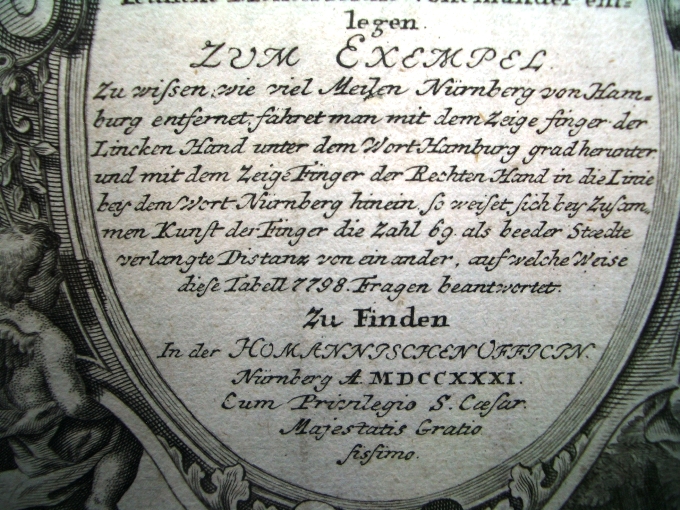 von einander ent=
legen.
ZUM EXEMPEL.
Zu wissen, wie viel Meilen Nürnberg von Ham=
burg entfernet, fähret man mit dem Zeige finger der
Lincken Hand unter dem Wort Hamburg grad herunter,
und mit dem Zeige Finger der Rechten Hand in die Linie
bey dem Wort Nürnberg hinein, so weiset sich bey Zusam=
men Kunst der Finger die Zahl 69. als beeder Stædte
verlangte Distanz von ein ander, auf welche Weise
diese Tabell 7798. Fragen beantwortet.
Zu Finden
In der HOMANNISCHEN OFFICIN.
Nürnberg A. MDCCXXXI.
Cum Privilegio S. Cæsar.
Majestatis Gratio
sissimo.